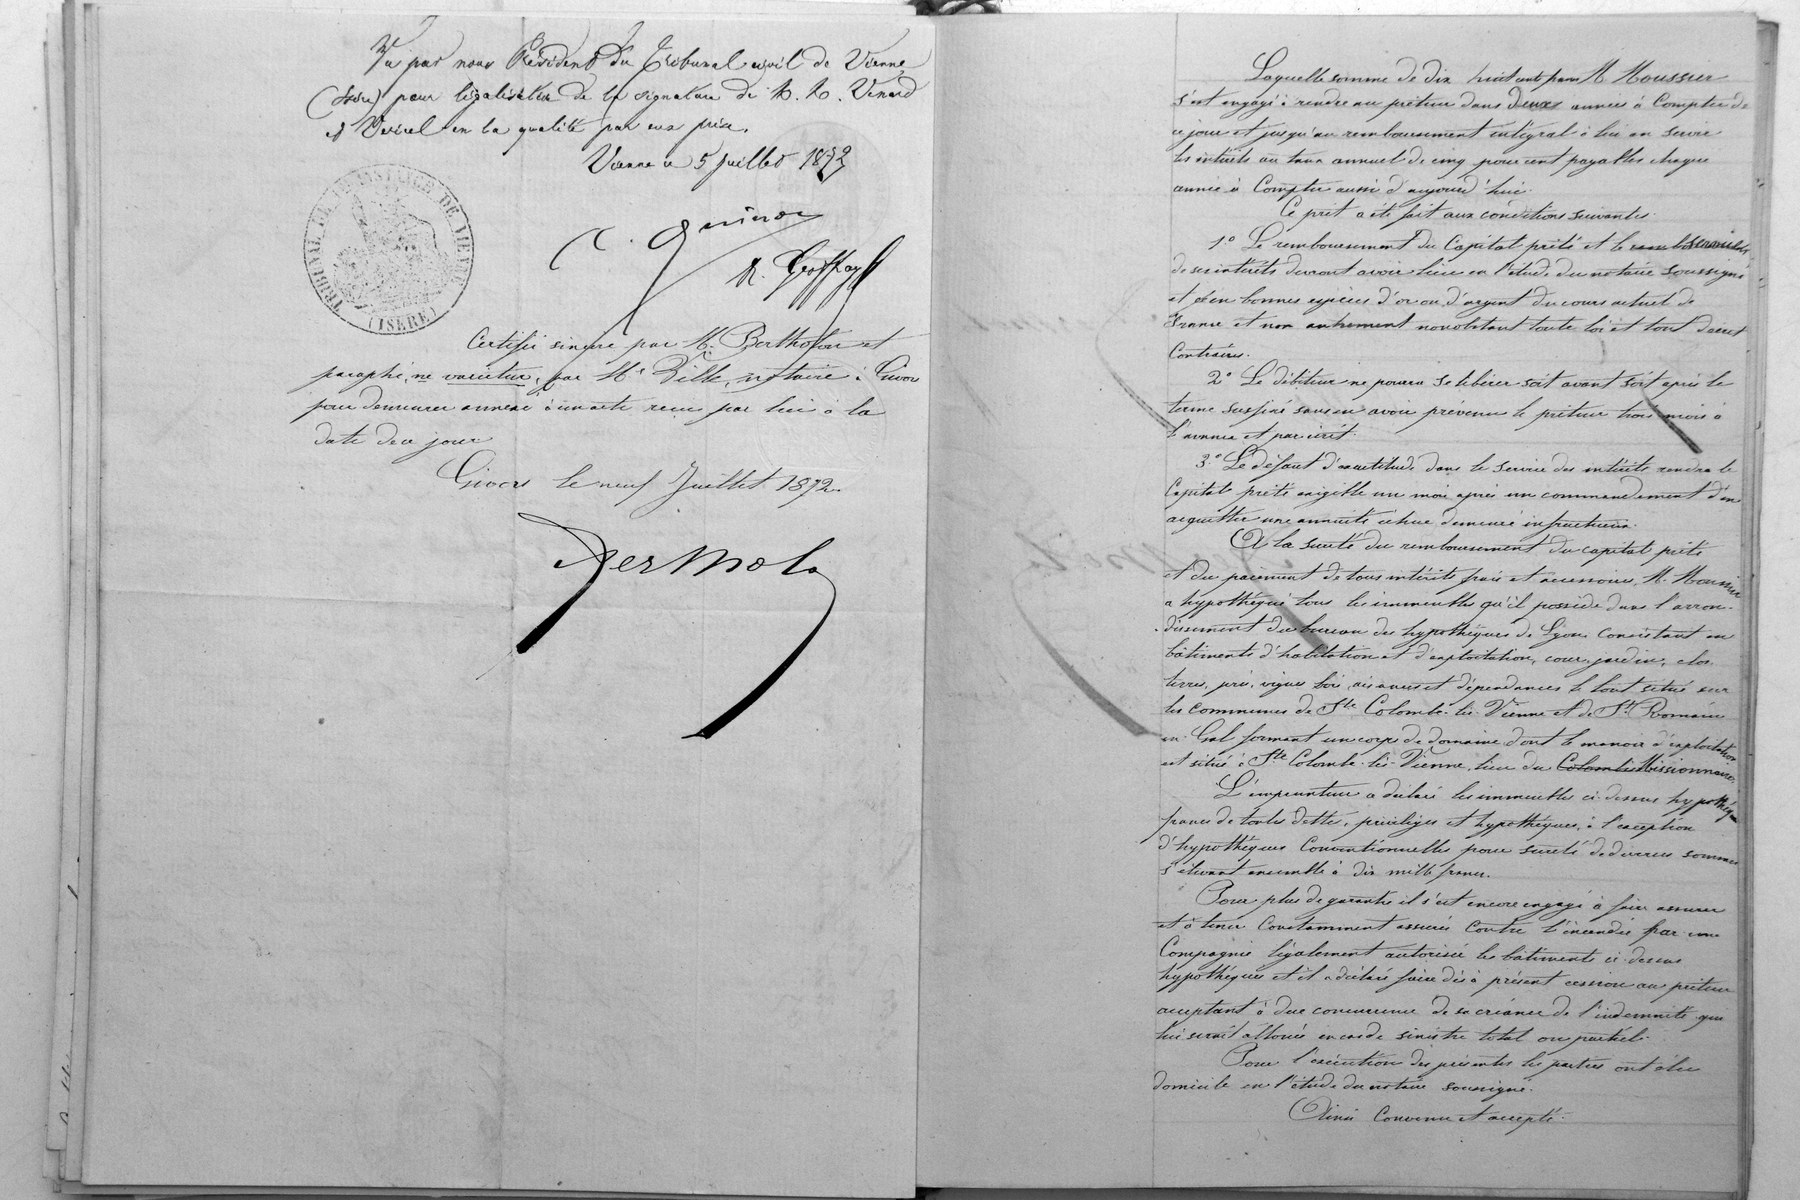 Vu par nous Président du Tribunal civil de Vienne
(Isère) pour légalisation de la signature de M. M. Venard
et Vessel en la qualité par eux prise.
Vienne ce 5 Juillet 1872
TRIBUNAL DE 1ÈRE INSTANCE DE VIENNE
(ISÈRE)
Certifié sincère par M. Bertholon et
paraphé, ne varietur, par Me Dille, notaire à Givors
pour demeurer annexé à un acte reçu par lui à la
date de ce jour
Givors le neuf Juillet 1872.
Laquelle somme de dix huit cents francs M. Moussier
s'est engagé à rendre au prêteur dans deux années à Compter de
ce jour et jusqu'au remboursement intégral à lui en servir
les intérêts au taux annuel de cinq pour cent payables chaque
année à Compter aussi d'aujourd'hui.
Ce prêt a été fait aux conditions suivantes.
1° Le remboursement du Capital prêté et le service
de ses intérêts devront avoir lieu en l'étude du notaire soussigné
et en bonnes espèces d'or ou d'argent du cours actuel de
France et non autrement nonobstant toute loi et tout décret
Contraires.
2° Le débiteur ne pourra se libérer soit avant soit après le
terme susfixé sans en avoir prévenu le prêteur trois mois à
l'avance et par écrit.
3° Le défaut d'exactitude dans le service des intérêts rendra le
Capital prêté exigible un mois après un commandement d'en
acquitter une annuité échue demeuré infructueux.
A la sureté du remboursement du capital prêté
et du paiement de tous intérêts frais et accessoires, M. Moussier
a hypothéqué tous les immeubles qu'il possède dans l'arron-
dissement du bureau des hypothèques de Lyon consistant en
bâtiments d'habitation et d'exploitation, cour, jardin, clos,
terres, prés, vignes bois, aisances et dépendances le tout situé sur
les communes de Ste Colombe-lès-Vienne et de St Romain
en-Gal formant un corps de domaine dont le manoir d'exploitation
est situé à Ste Colombe-lès-Vienne, lieu du Colombier Missionnaire.
L'emprunteur a déclaré les immeubles ci-dessus hypothéqués
francs de toutes dettes, privilèges et hypothèques, à l'exception
d'hypothèques Conventionnelles pour sureté de diverses sommes
s'élevant ensemble à dix mille francs.
Pour plus de garantie il s'est encore engagé à faire assurer
et à tenir Constamment assurés Contre l'incendie par une
Compagnie légalement autorisée les bâtiments ci-dessus
hypothéqués et il a déclaré faire dès à présent cession au prêteur
acceptant à due concurrence de sa créance de l'indemnité qui
lui serait allouée en cas de sinistre total ou partiel.
Pour l'exécution des présentes les parties ont élu
domicile en l'étude du notaire soussigné.
Ainsi Convenu et accepté.